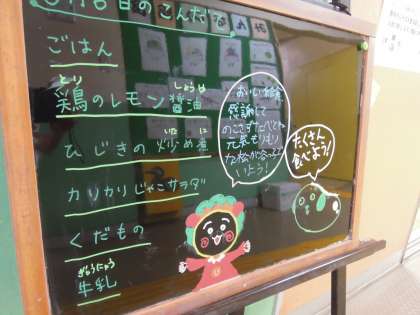 月6日のこんだて
ごはん
とり しょうゆ
鶏のレモン醤油
いた に
ひじきの炒め煮
カリカリじゃこサラダ
くだもの
ぎゅうにゅう
牛乳
おいしい給食
感謝して
のこさずたべてね
元気もりもり
いこう!
たくさん
食べよう!